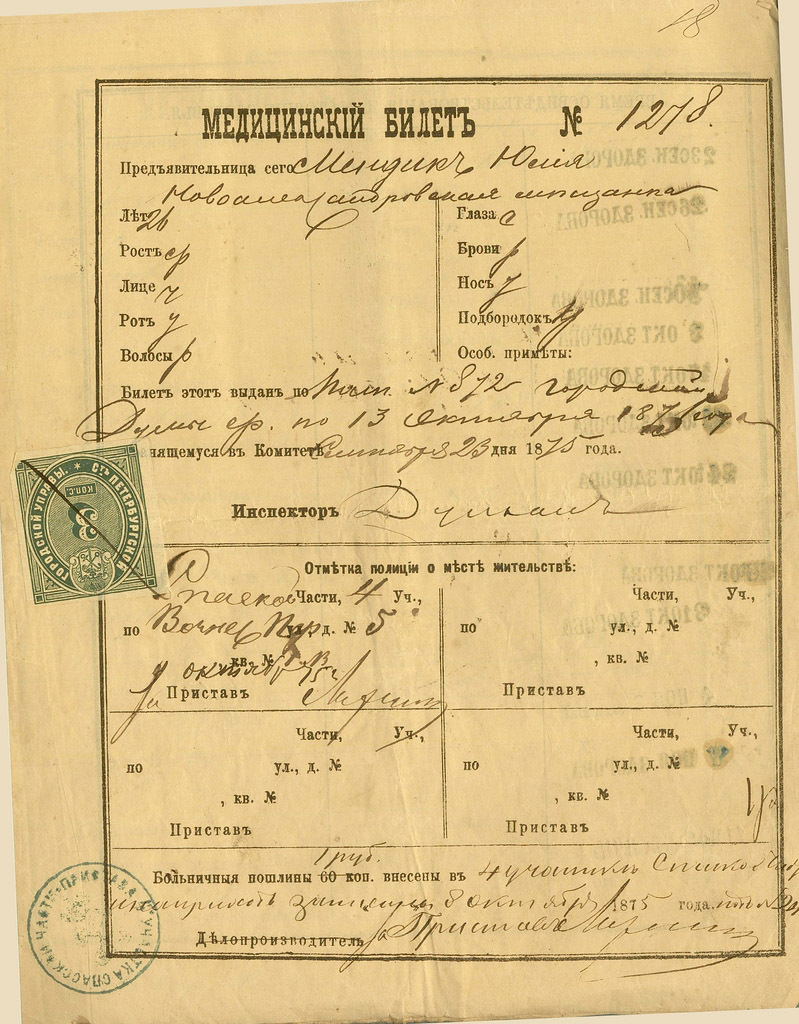 18
МЕДИЦИНСКІЙ БИЛЕТЪ № 1278.
Предъявительница сего Мендикъ Юлія
Новоалександровская мещанка
Лѣтъ 26
Глаза с
Ростъ ср
Брови р
Лице ч
Носъ у
Ротъ у
Подбородокъ у
Волосы р
Особ. примѣты:
Билетъ этотъ выданъ по № 872 городской
Думы ср. по 13 Октября 187 года
нящемуся въ Комитетѣ Сентября 23 дня 1875 года.
Инспекторъ
С.ТЪ ПЕТЕРБУРГСКОЙ ГОРОДСКОЙ УПРАВЫ.
3 КОП.С.
Отмѣтка полиціи о мѣстѣ жительствѣ:
Спаской Части, 4 Уч.,
по ул., д. № 5
кв. №
октября 75
За Приставъ
Части, Уч.,
по ул., д. №
, кв. №
Приставъ
Части, Уч.,
по ул., д. №
, кв. №
Приставъ
Части, Уч.,
по ул., д. №
, кв. №
Приставъ
1 руб.
Больничныя пошлины 60 коп. внесены въ 4 участкъ
8 октября 1875 года.
Дѣлопроизводитель За Приставъ
ПРИСТАВА 4 УЧАСТКА СПАССКОЙ ЧАСТИ